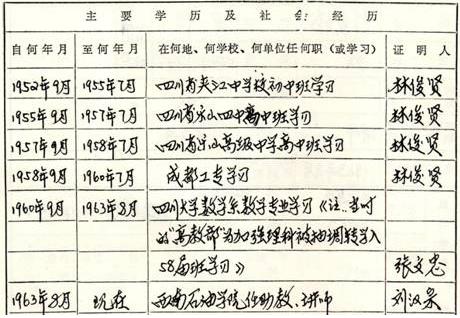 主要学历及社会经历
自何年月 至何年月 在何地、何学校、何单位任何职（或学习） 证明人
1952年9月 1955年7月 四川省夹江中学校初中班学习 林俊贤
1955年9月 1957年7月 四川省乐山四中高中班学习 林俊贤
1957年9月 1958年7月 四川省乐山高级中学高中班学习 林俊贤
1958年9月 1960年7月 成都工专学习 林俊贤
1960年9月 1963年8月 四川大学数学系数学专业学习《注..当时
的"高教部"为加强理科被抽调转学入
58届班学习》 张文忠
1963年8月 现在 西南石油学院任助教、讲师 刘汉